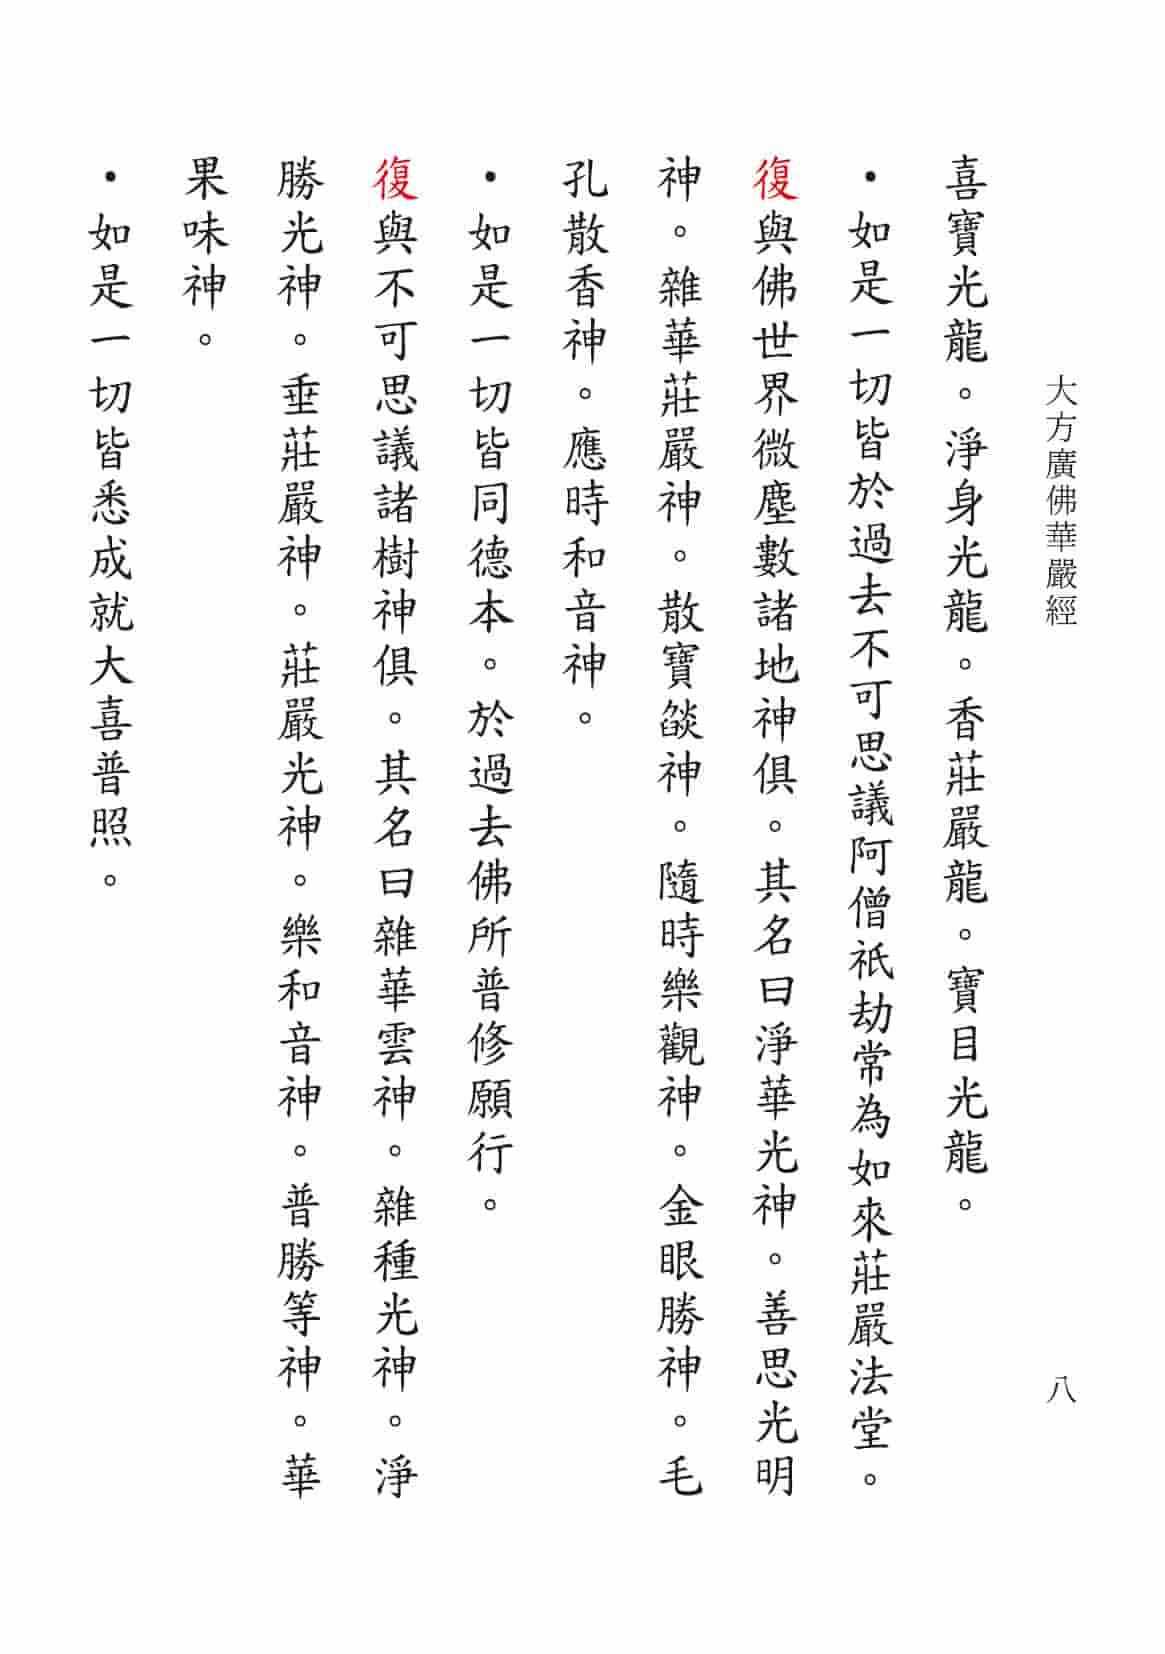 大方廣佛華嚴經
八
喜寶光龍。淨身光龍。香莊嚴龍。寶目光龍。
•如是一切皆於過去不可思議阿僧祇劫常為如來莊嚴法堂。
復與佛世界微塵數諸地神俱。其名曰淨華光神。善思光明
神。雜華莊嚴神。散寶燄神。隨時樂觀神。金眼勝神。毛
孔散香神。應時和音神。
•如是一切皆同德本。於過去佛所普修願行。
復與不可思議諸樹神俱。其名曰雜華雲神。雜種光神。淨
勝光神。垂莊嚴神。莊嚴光神。樂和音神。普勝等神。華
果味神。
•如是一切皆悉成就大喜普照。